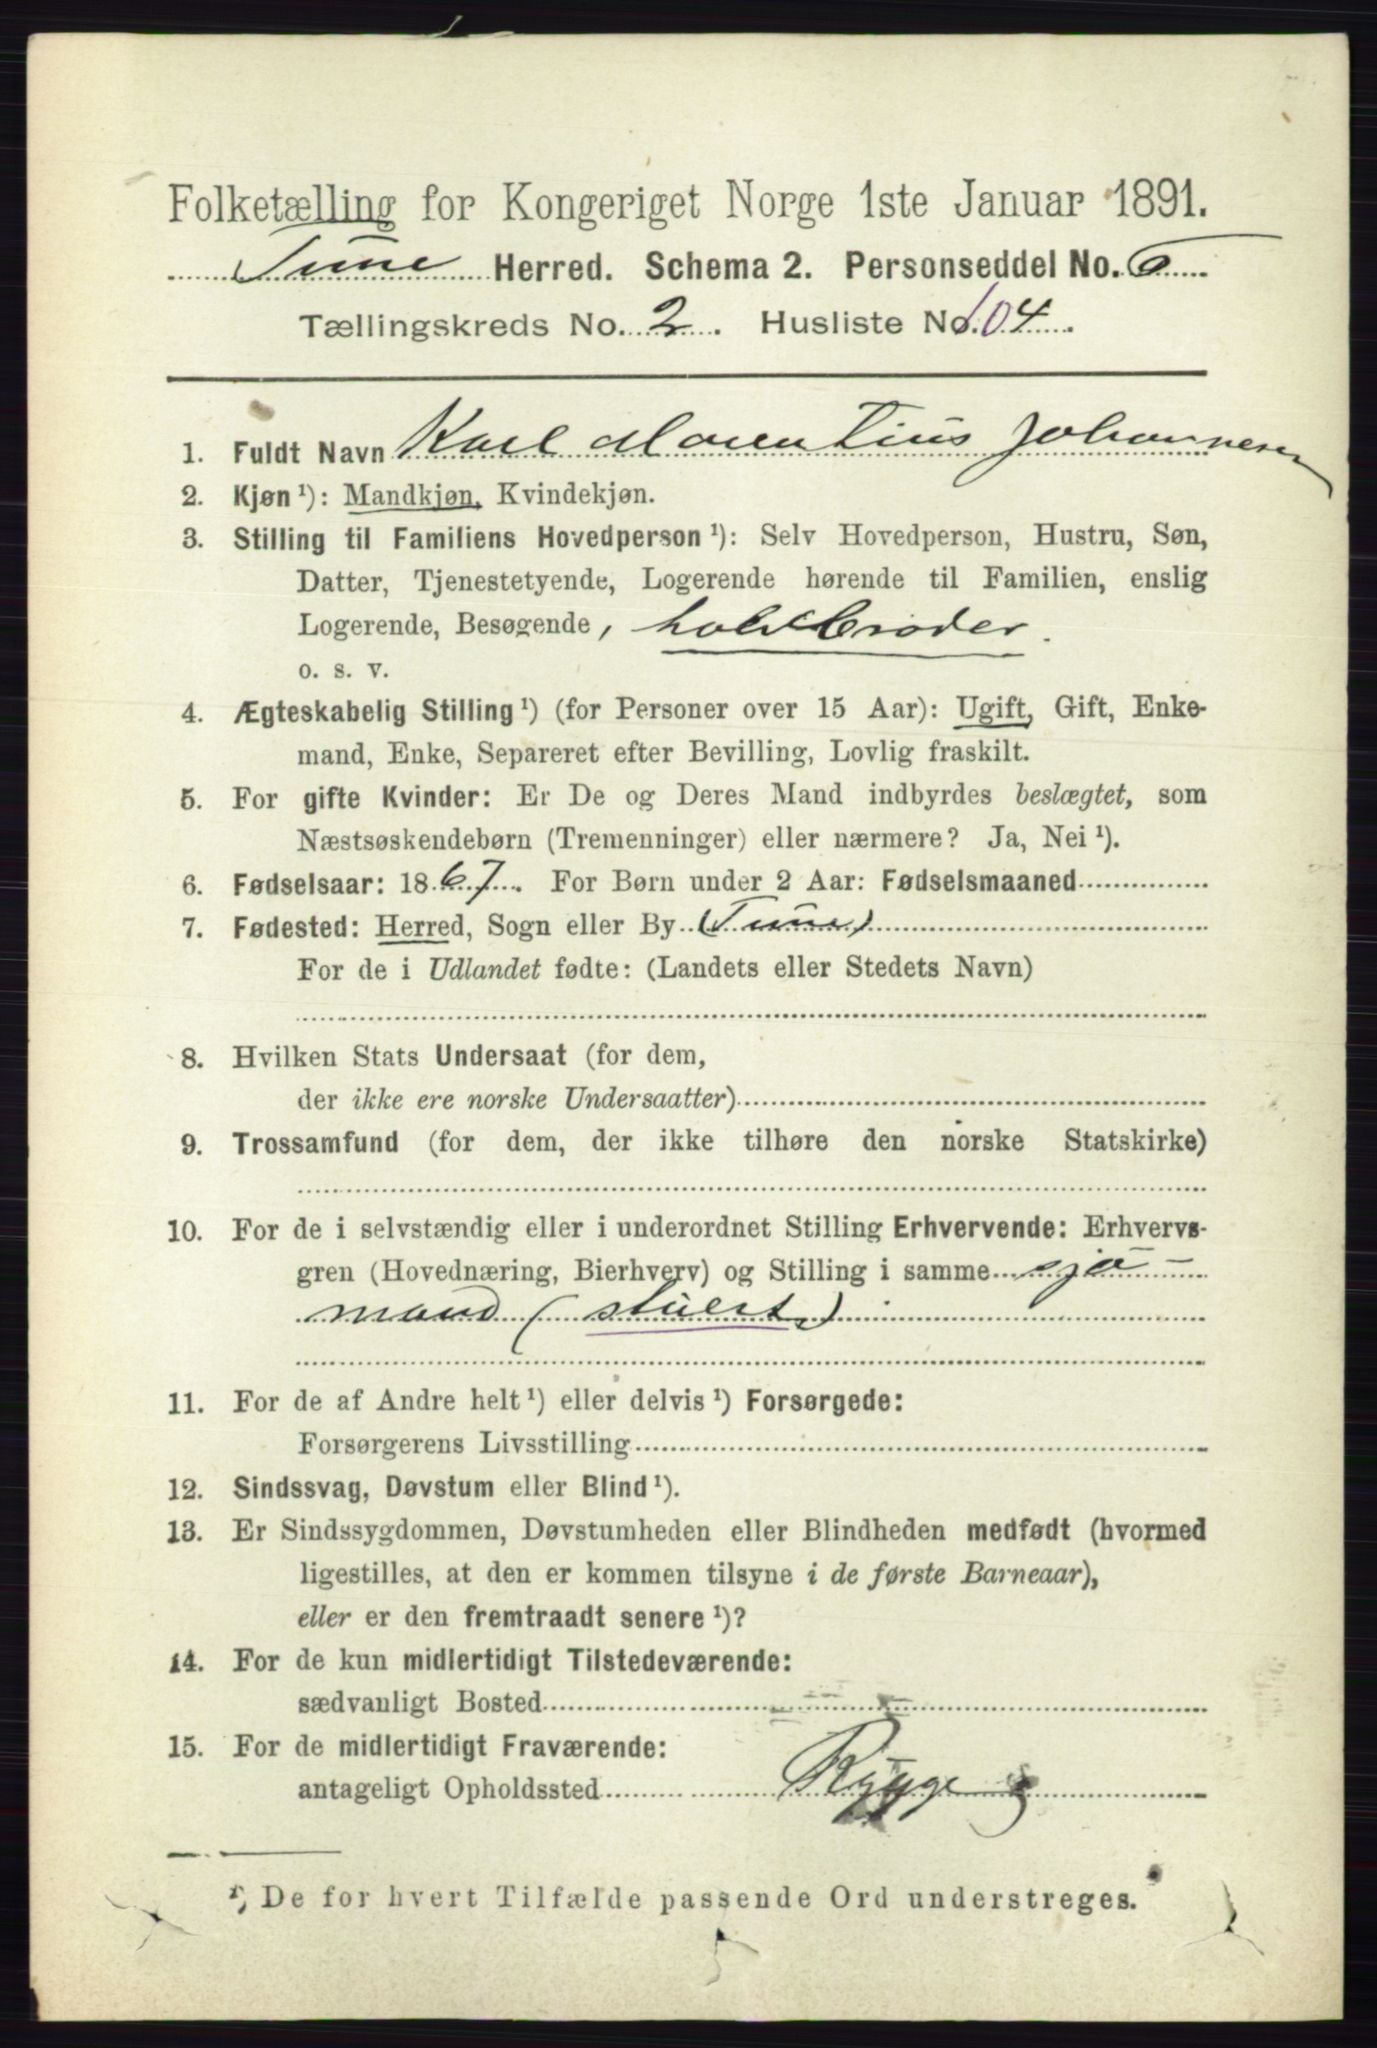 Folketælling for Kongeriget Norge 1ste Januar 1891.
Tune Herred. Schema 2. Personseddel No. 6
Tællingskreds No. 2. Husliste No. 104.
1. Fuldt Navn Karl Morentius Johannesen
2. Kjøn ¹): Mandkjøn, Kvindekjøn.
3. Stilling til Familiens Hovedperson ¹): Selv Hovedperson, Hustru, Søn,
Datter, Tjenestetyende, Logerende hørende til Familien, enslig
Logerende, Besøgende, halvbroder.
o. s. v.
4. Ægteskabelig Stilling ¹) (for Personer over 15 Aar): Ugift, Gift, Enke-
mand, Enke, Separeret efter Bevilling, Lovlig fraskilt.
5. For gifte Kvinder: Er De og Deres Mand indbyrdes beslægtet, som
Næstsøskendebørn (Tremenninger) eller nærmere? Ja, Nei ¹).
6. Fødselsaar: 1867. For Børn under 2 Aar: Fødselsmaaned
7. Fødested: Herred, Sogn eller By (Tune)
For de i Udlandet fødte: (Landets eller Stedets Navn)
8. Hvilken Stats Undersaat (for dem,
der ikke ere norske Undersaatter)
9. Trossamfund (for dem, der ikke tilhøre den norske Statskirke)
10. For de i selvstændig eller i underordnet Stilling Erhvervende: Erhvervs-
gren (Hovednæring, Bierhverv) og Stilling i samme sjø-
mand (stuert)
11. For de af Andre helt ¹) eller delvis ¹) Forsørgede:
Forsørgerens Livsstilling
12. Sindssvag, Døvstum eller Blind ¹).
13. Er Sindssygdommen, Døvstumheden eller Blindheden medfødt (hvormed
ligestilles, at den er kommen tilsyne i de første Barneaar),
eller er den fremtraadt senere ¹)?
14. For de kun midlertidigt Tilstedeværende:
sædvanligt Bosted
15. For de midlertidigt Fraværende:
antageligt Opholdssted Rygge
¹) De for hvert Tilfælde passende Ord understreges.